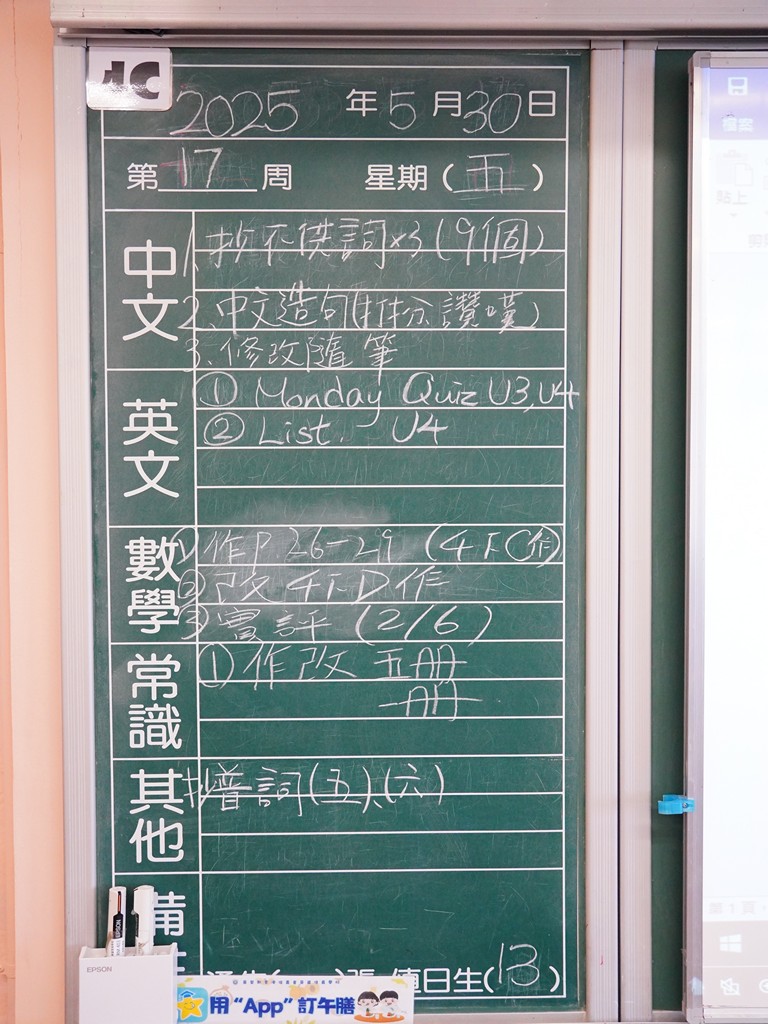 4C
2025 年 5 月 30 日
第 17 周 星期 ( 五 )
中文
1. 抄不供詞×3 (9個)
2. 中文造句( 讚嘆)
3. 修改隨筆
英文
① Monday Quiz U3, U4
② List U4
數學
① 作P 26-29 (4下C作)
② 改 4下D作
③ 實評 (2/6)
常識
① 作改 五冊
一冊
其他
抄普詞(五)、(六)
備
值日生( 13 )
EPSON
用 “App” 訂午膳
檔案
貼上